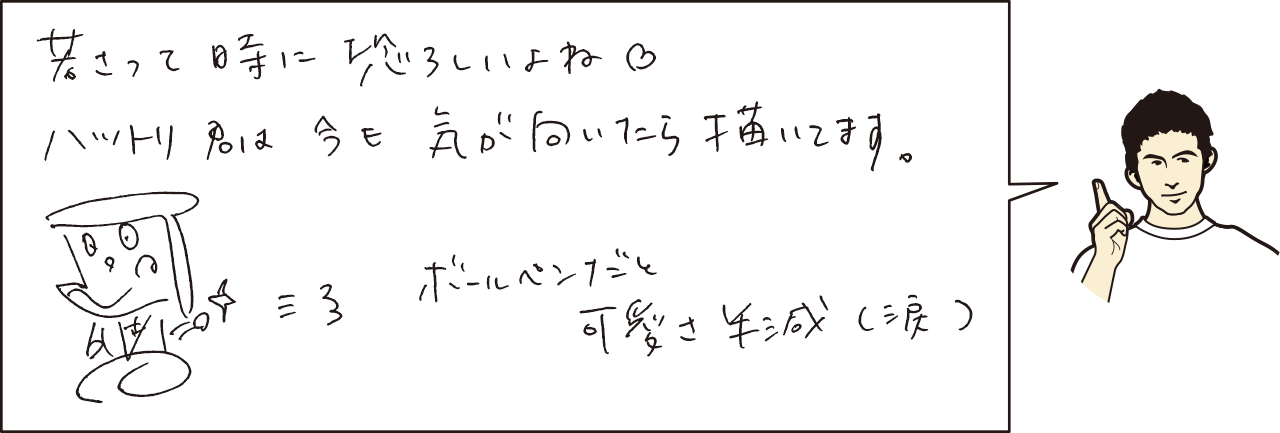 若さって時に恐ろしいよね。
ハットリ君は今も気が向いたら描いてます。
ボールペンだと
可愛さ半減(涙)